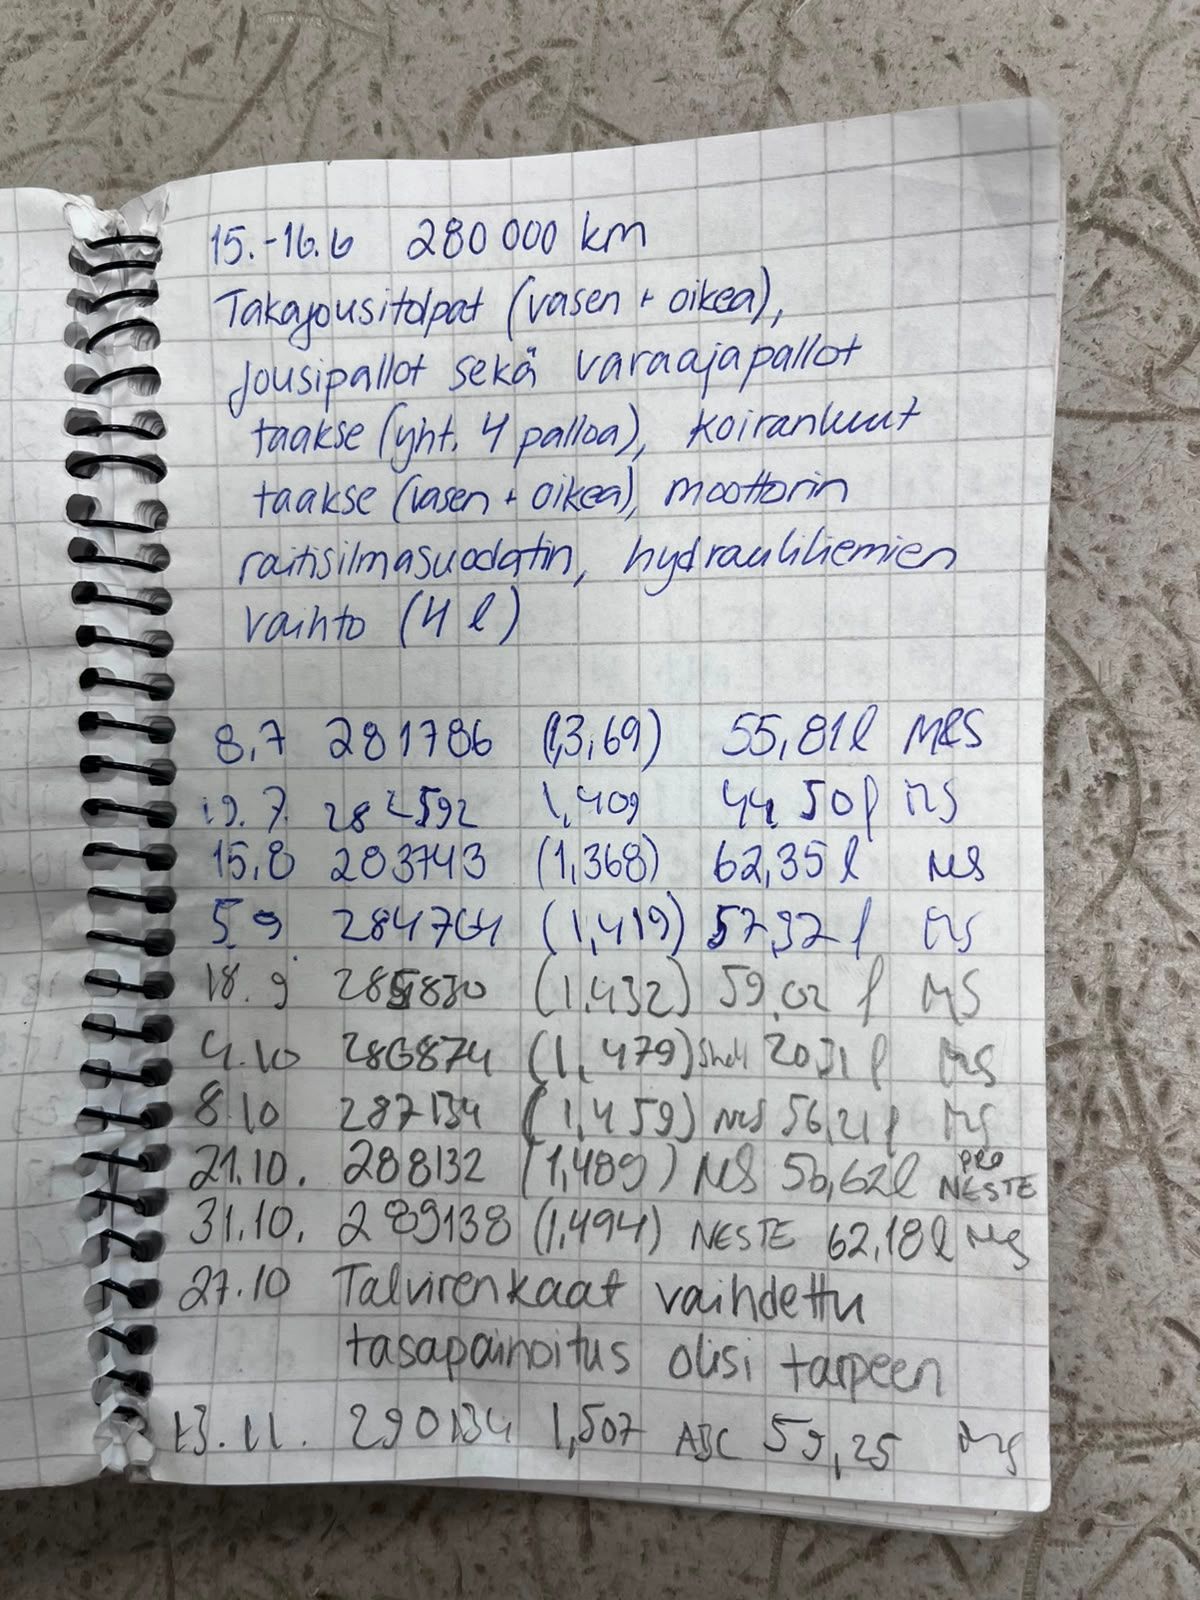 15.-16.6 280 000 km
Takajousitolpat (vasen + oikea),
jousipallot sekä varaajapallot
taakse (yht. 4 palloa), koiranluut
taakse (vasen + oikea), moottorin
raitisilmasuodatin, hydrauliliemien
vaihto (4 l)
8.7 281786 (1,3,69) 55,81 l MS
19.7. 282592 1,409 44,50 l MS
15.8 283743 (1,368) 62,35 l MS
5.9 284764 (1,419) 57,92 l MS
18.9 285830 (1,432) 59,02 l MS
4.10 286874 (1,479) Shell 20,31 l MS
8.10 287134 (1,459) MS 56,21 l MS
21.10. 288132 (1,489) MS 50,62 l PRO NESTE
31.10. 289138 (1,494) NESTE 62,18 l MS
27.10 Talvirenkaat vaihdettu
tasapainoitus olisi tarpeen
13.11. 290134 1,507 ABC 59,25 MS